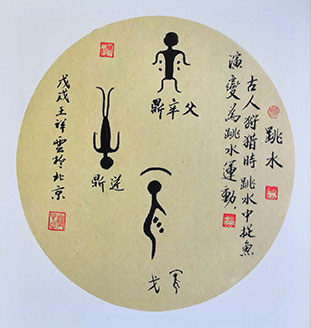 跳水
古人狩猎時跳水中捉魚
演變為跳水運動。
父辛鼎
逆鼎
戈
戊戌王祥雲於北京